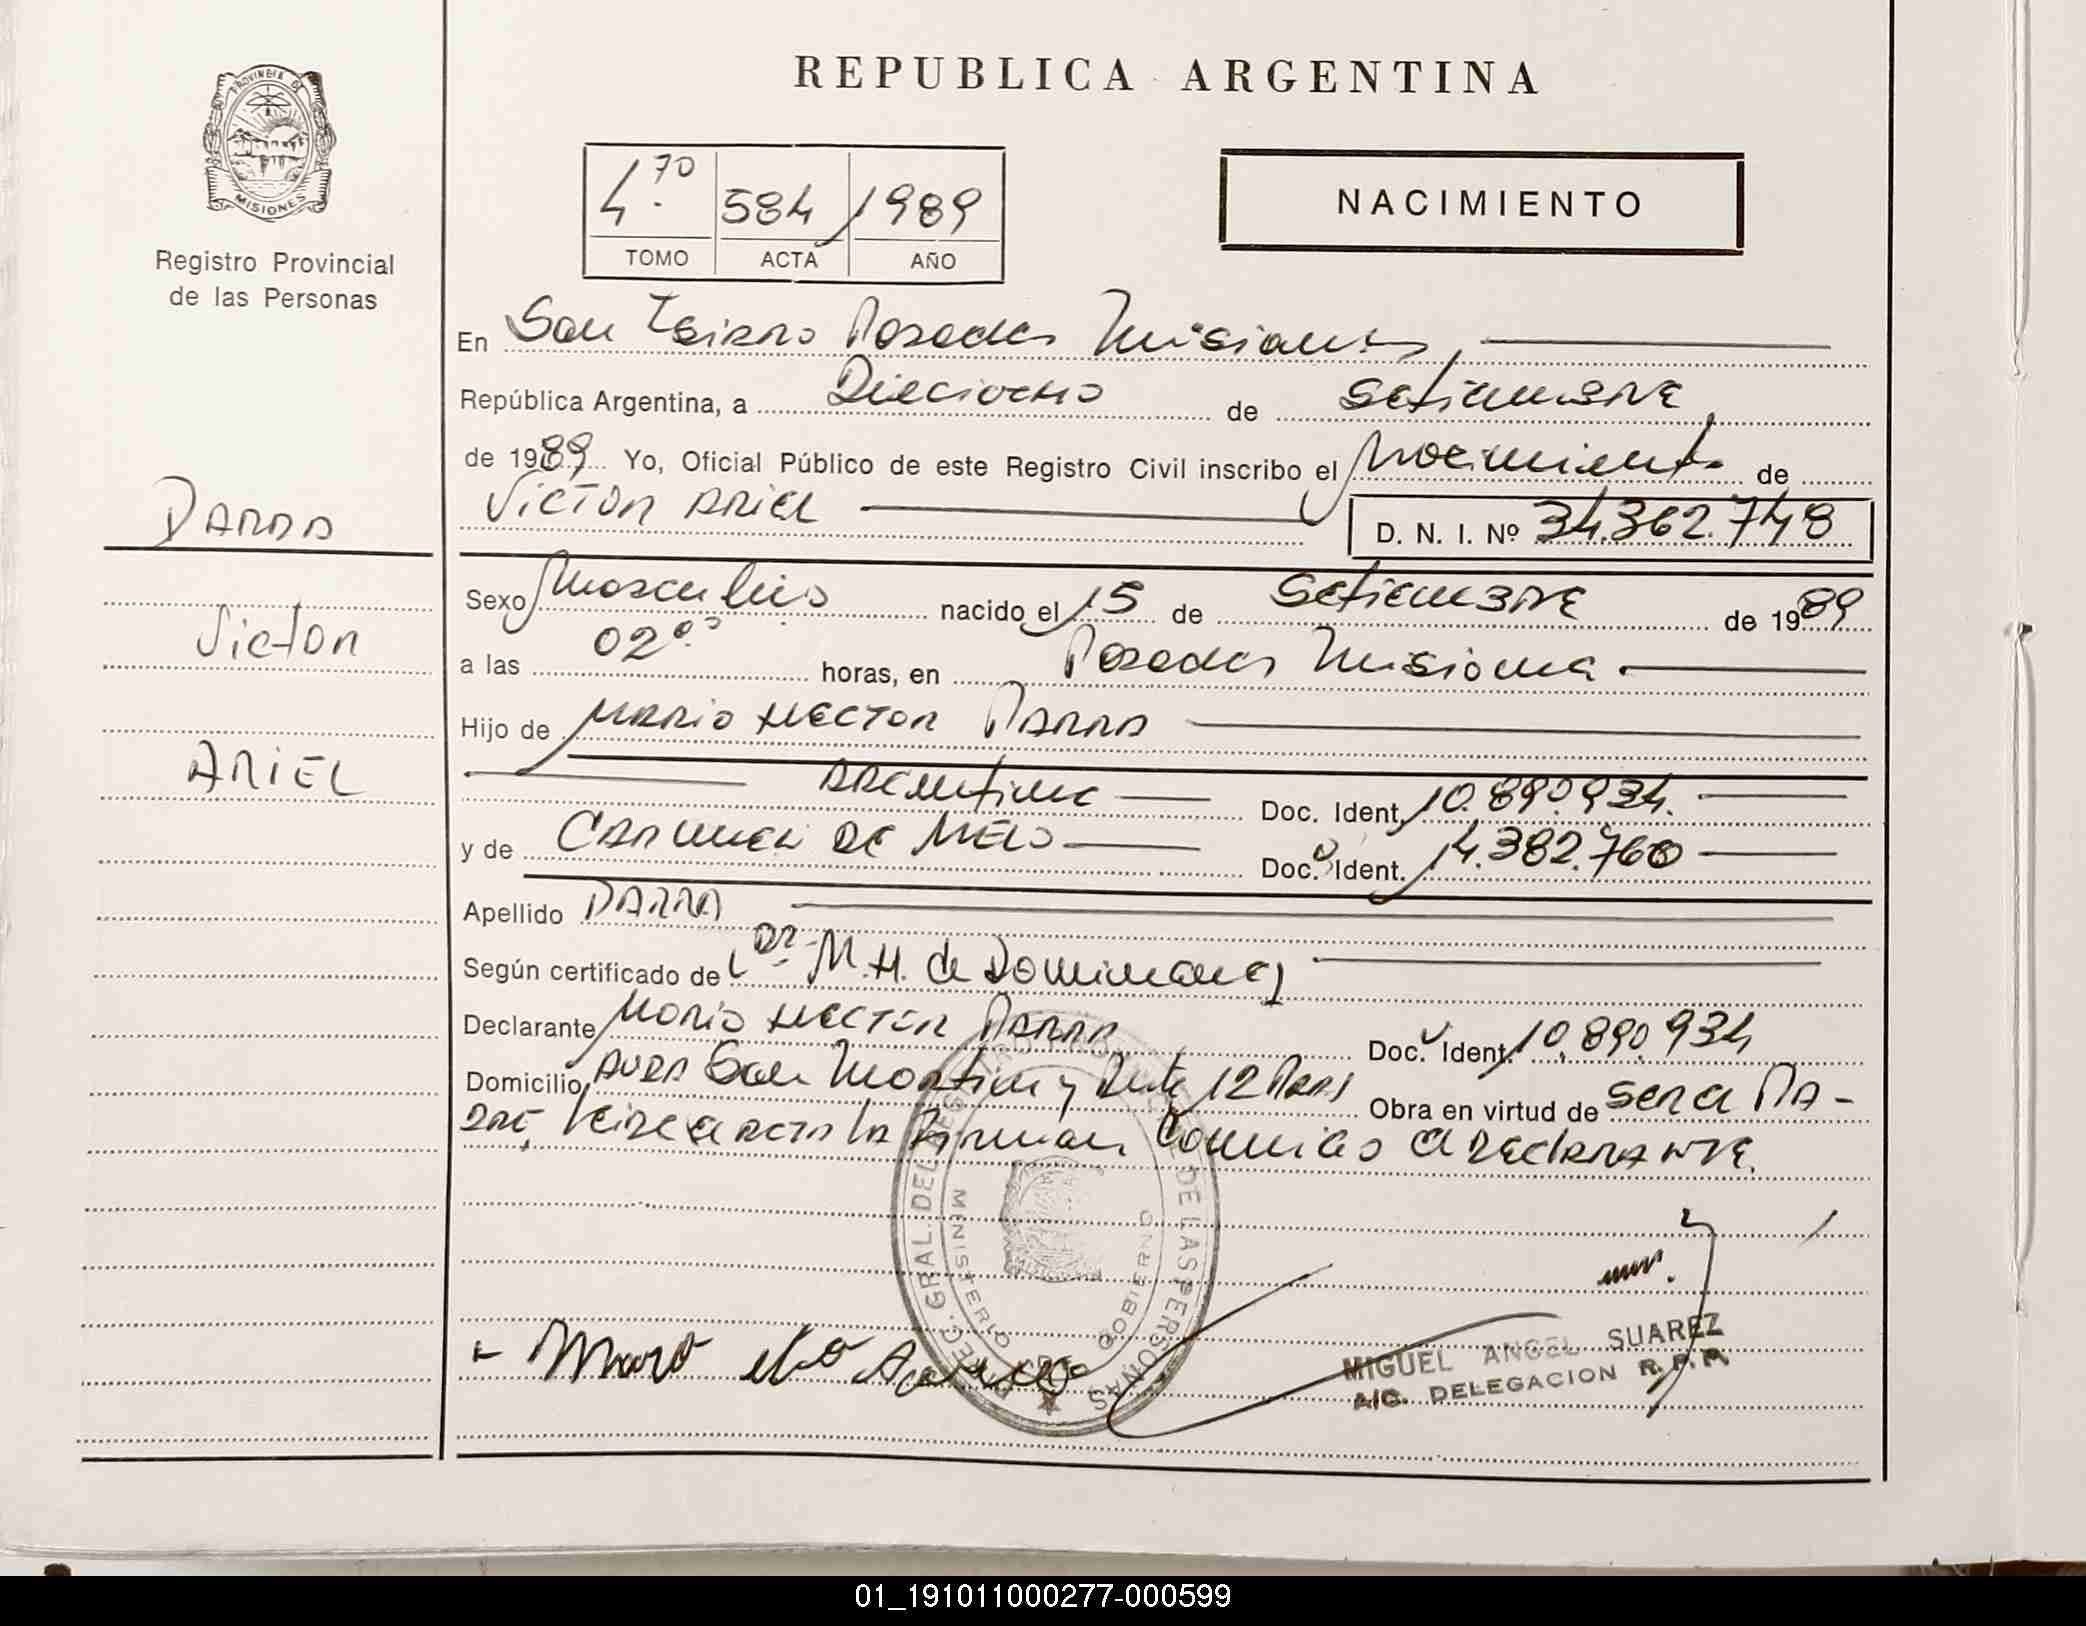 PROVINCIA DE MISIONES
Registro Provincial
de las Personas
REPUBLICA ARGENTINA
4.TO 584 1989
TOMO ACTA AÑO
NACIMIENTO
En San Isidro Posadas Misiones,
República Argentina, a Dieciocho de Setiembre
de 1989 Yo, Oficial Público de este Registro Civil inscribo el Nacimiento de
Victor Ariel
D. N. I. Nº 34.362.748
Parra
Victor
ARIEL
Sexo Masculino nacido el 15 de Setiembre de 1989
a las 02 horas, en Posadas Misiones
Hijo de Mario Hector Parra
Argentino Doc. Ident. 10.890.934.
y de Carmen de Melo Doc. Ident. 14.382.760
Apellido PARRA
Según certificado de M.H. de Dominguez
Declarante Mario Hector Parra Doc. Ident. 10.890.934
Domicilio Avda San Martin y Ruta 12 Pdas Obra en virtud de ser el Pa-
dre, Leida el acta la firman Conmigo el declarante.
DIREC. GRAL. DEL REGISTRO DE LAS PERSONAS
MINISTERIO DE GOBIERNO
MIGUEL ANGEL SUAREZ
A/C. DELEGACION R.P.P.
01_191011000277-000599